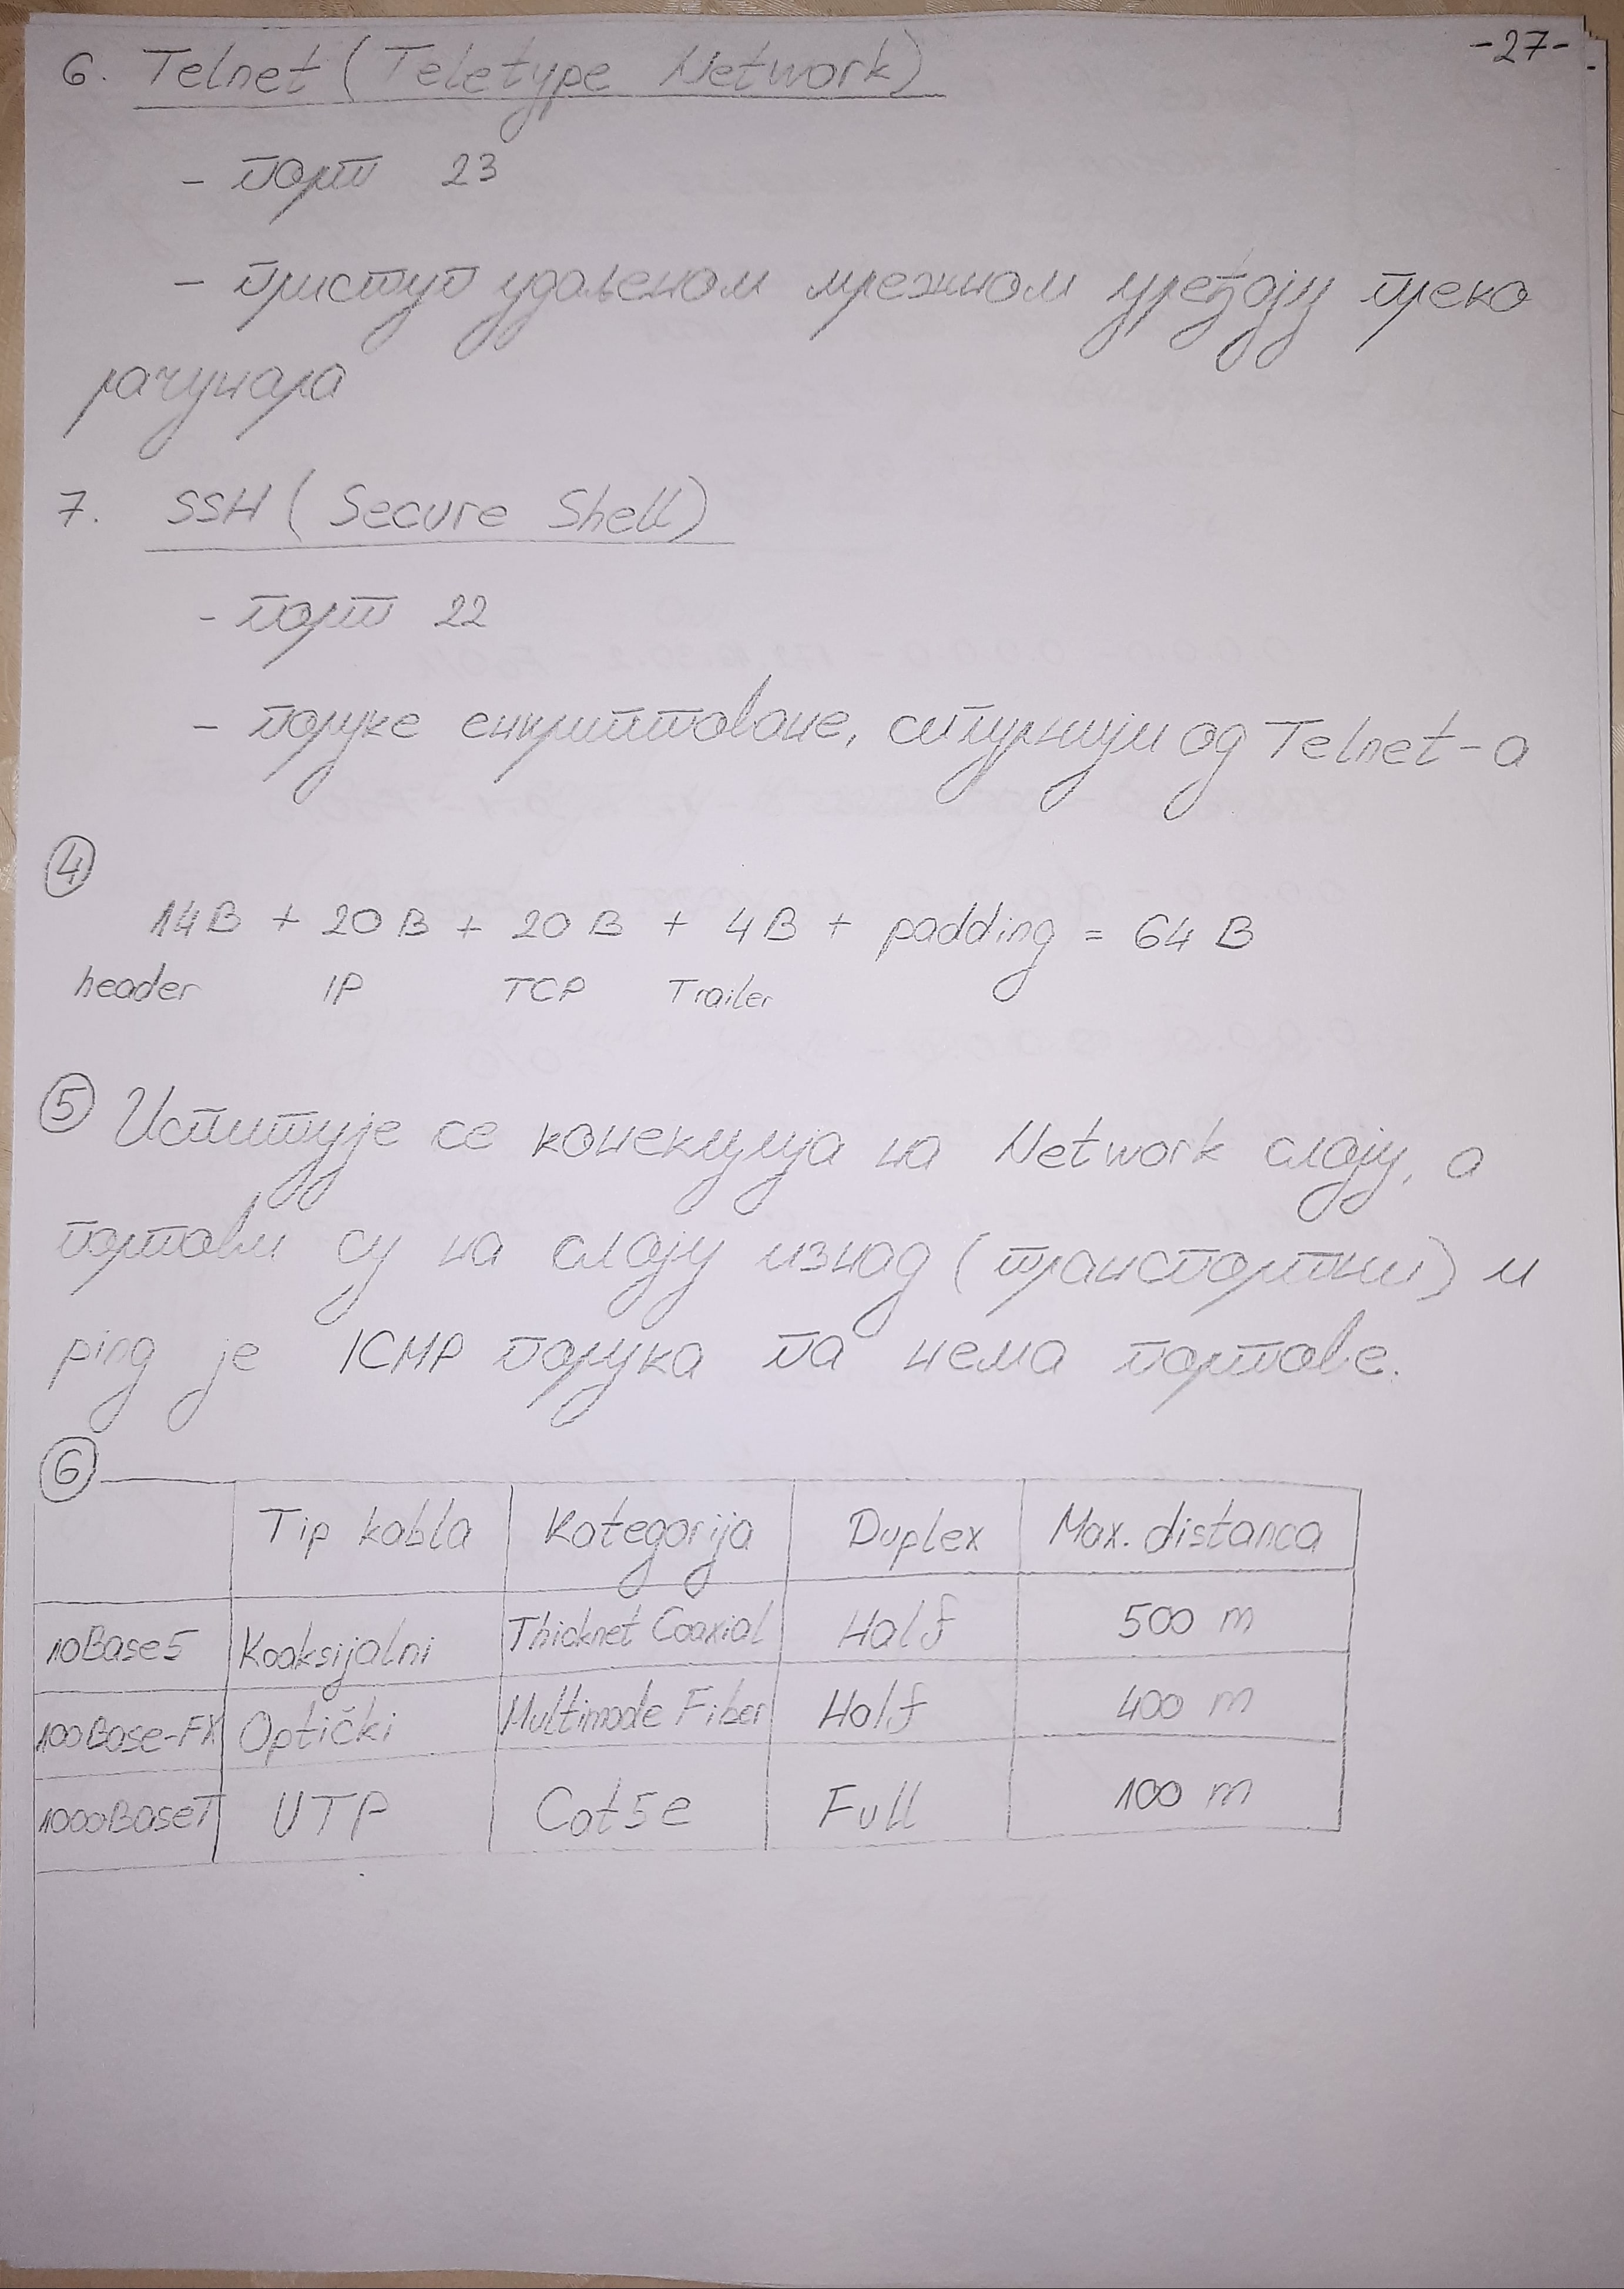 -27-
6. Telnet (Teletype Network)
- порт 23
- приступ удаљеном мрежном уређају преко
рачунара
7. SSH (Secure Shell)
- порт 22
- поруке енкриптоване, сигурнији од Telnet-a
4
14B + 20B + 20B + 4B + padding = 64 B
header IP TCP Trailer
5 Испитује се конекција на Network слоју, а
портови су на слоју изнад (транспортни) и
ping је ICMP порука па нема портове.
6
Tip kabla Kategorija Duplex Max. distanca
10Base5 Koaksijalni Thicknet Coaxial Half 500 m
100Base-FX Optički Multimode Fiber Half 400 m
1000BaseT UTP Cat5e Full 100 m